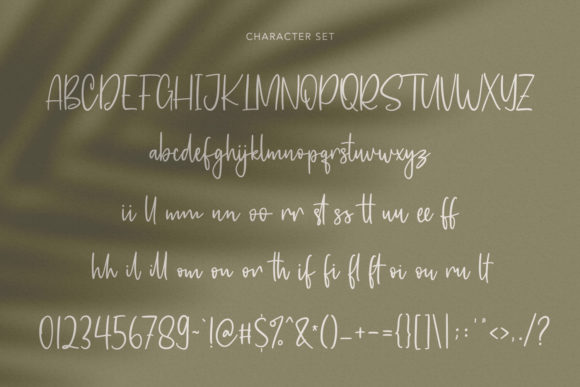 CHARACTER SET
ABCDEFGHIJKLMNOPQRSTUVWXYZ
abcdefghijklmnopqrstuvwxyz
ii ll mm nn oo rr st ss tt uu ee ff
hh il ill om on or th if fi fl ft oi ou ru lt
0123456789~`!@#$%^&*()_+-={}[]\|;:'"<>,./?